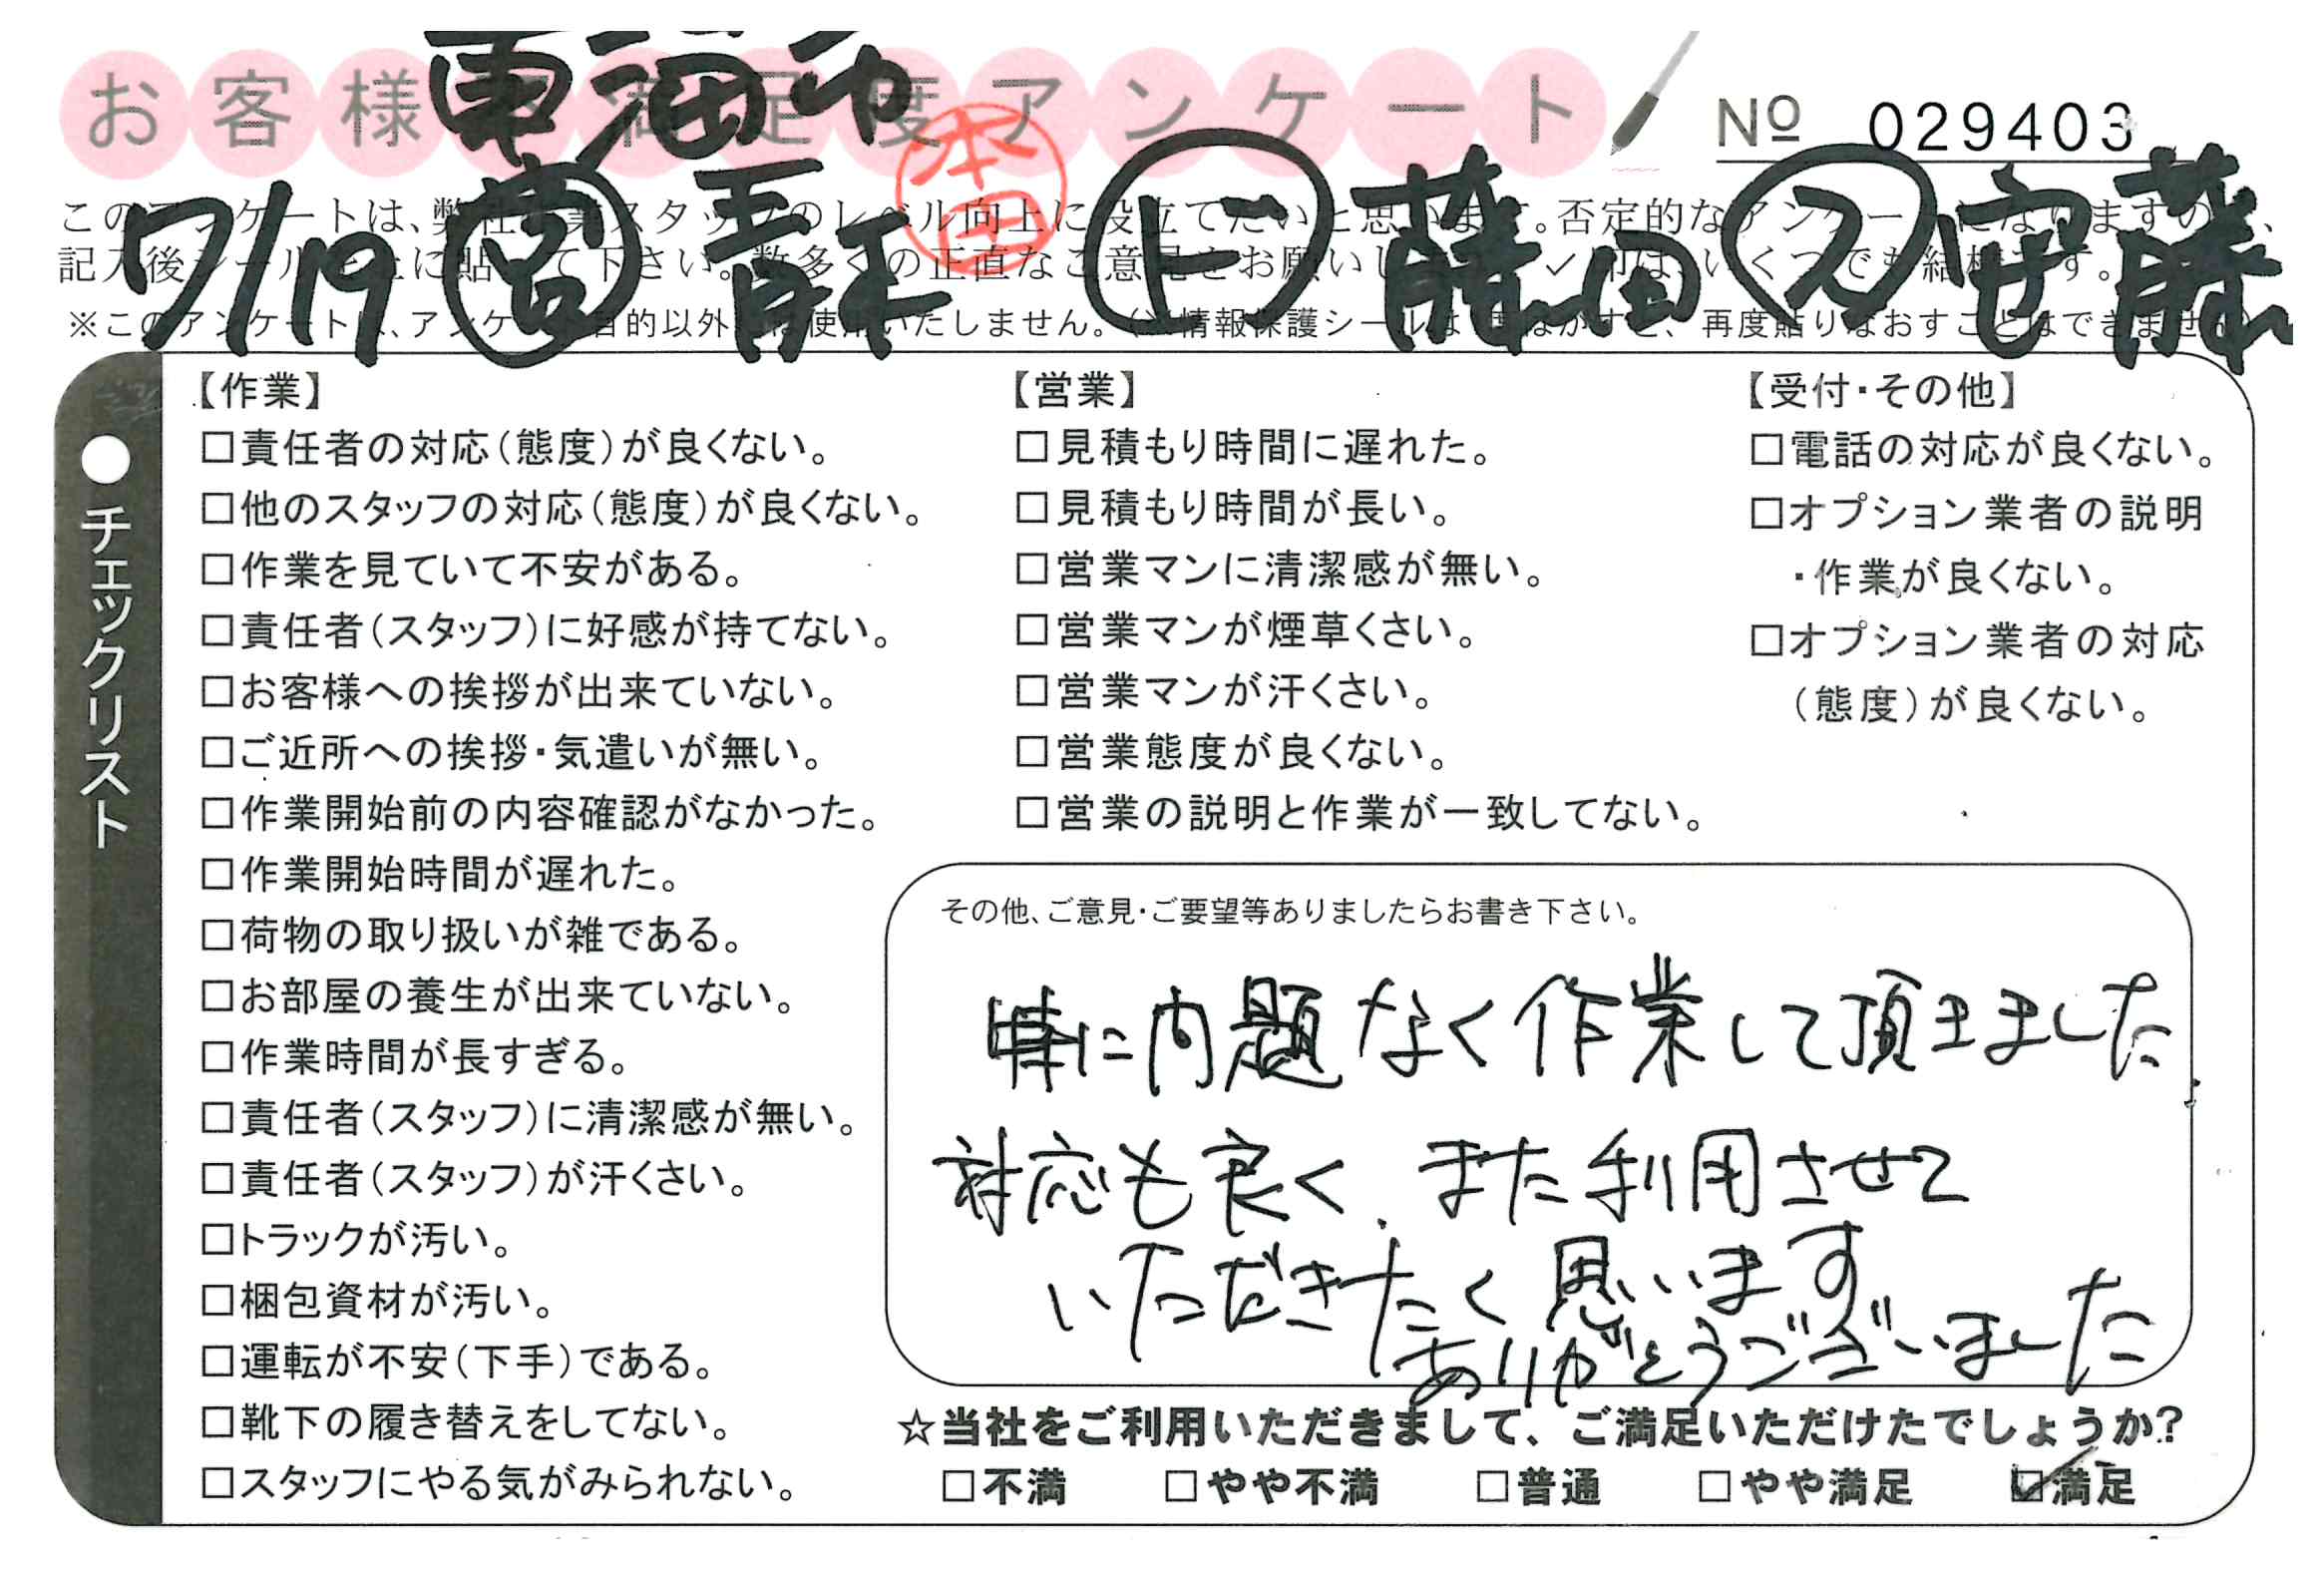 お客様満足度アンケート
No 029403
7/19 営 青木 本田 上 藤田 ス 安藤
このアンケートは、弊社 業スタッフのレベル向上に役立てたいと思います。否定的なアンケートになりますので、
記入後シールを上に貼って下さい。数多くの正直なご意見をお願いします。✓印は、いくつでも結構です。
※このアンケートは、アンケート目的以外には使用いたしません。
再度貼りなおすことはできません
●チェックリスト
【作業】
□責任者の対応(態度)が良くない。
□他のスタッフの対応(態度)が良くない。
□作業を見ていて不安がある。
□責任者(スタッフ)に好感が持てない。
□お客様への挨拶が出来ていない。
□ご近所への挨拶・気遣いが無い。
□作業開始前の内容確認がなかった。
□作業開始時間が遅れた。
□荷物の取り扱いが雑である。
□お部屋の養生が出来ていない。
□作業時間が長すぎる。
□責任者(スタッフ)に清潔感が無い。
□責任者(スタッフ)が汗くさい。
□トラックが汚い。
□梱包資材が汚い。
□運転が不安(下手)である。
□靴下の履き替えをしてない。
□スタッフにやる気がみられない。
【営業】
□見積もり時間に遅れた。
□見積もり時間が長い。
□営業マンに清潔感が無い。
□営業マンが煙草くさい。
□営業マンが汗くさい。
□営業態度が良くない。
□営業の説明と作業が一致してない。
【受付・その他】
□電話の対応が良くない。
□オプション業者の説明
・作業が良くない。
□オプション業者の対応
(態度)が良くない。
その他、ご意見・ご要望等ありましたらお書き下さい。
特に問題なく作業して頂きました
対応も良く、また利用させて
いただきたく思います
ありがとうございました
☆当社をご利用いただきまして、ご満足いただけたでしょうか?
□不満 □やや不満 □普通 □やや満足 ☑満足